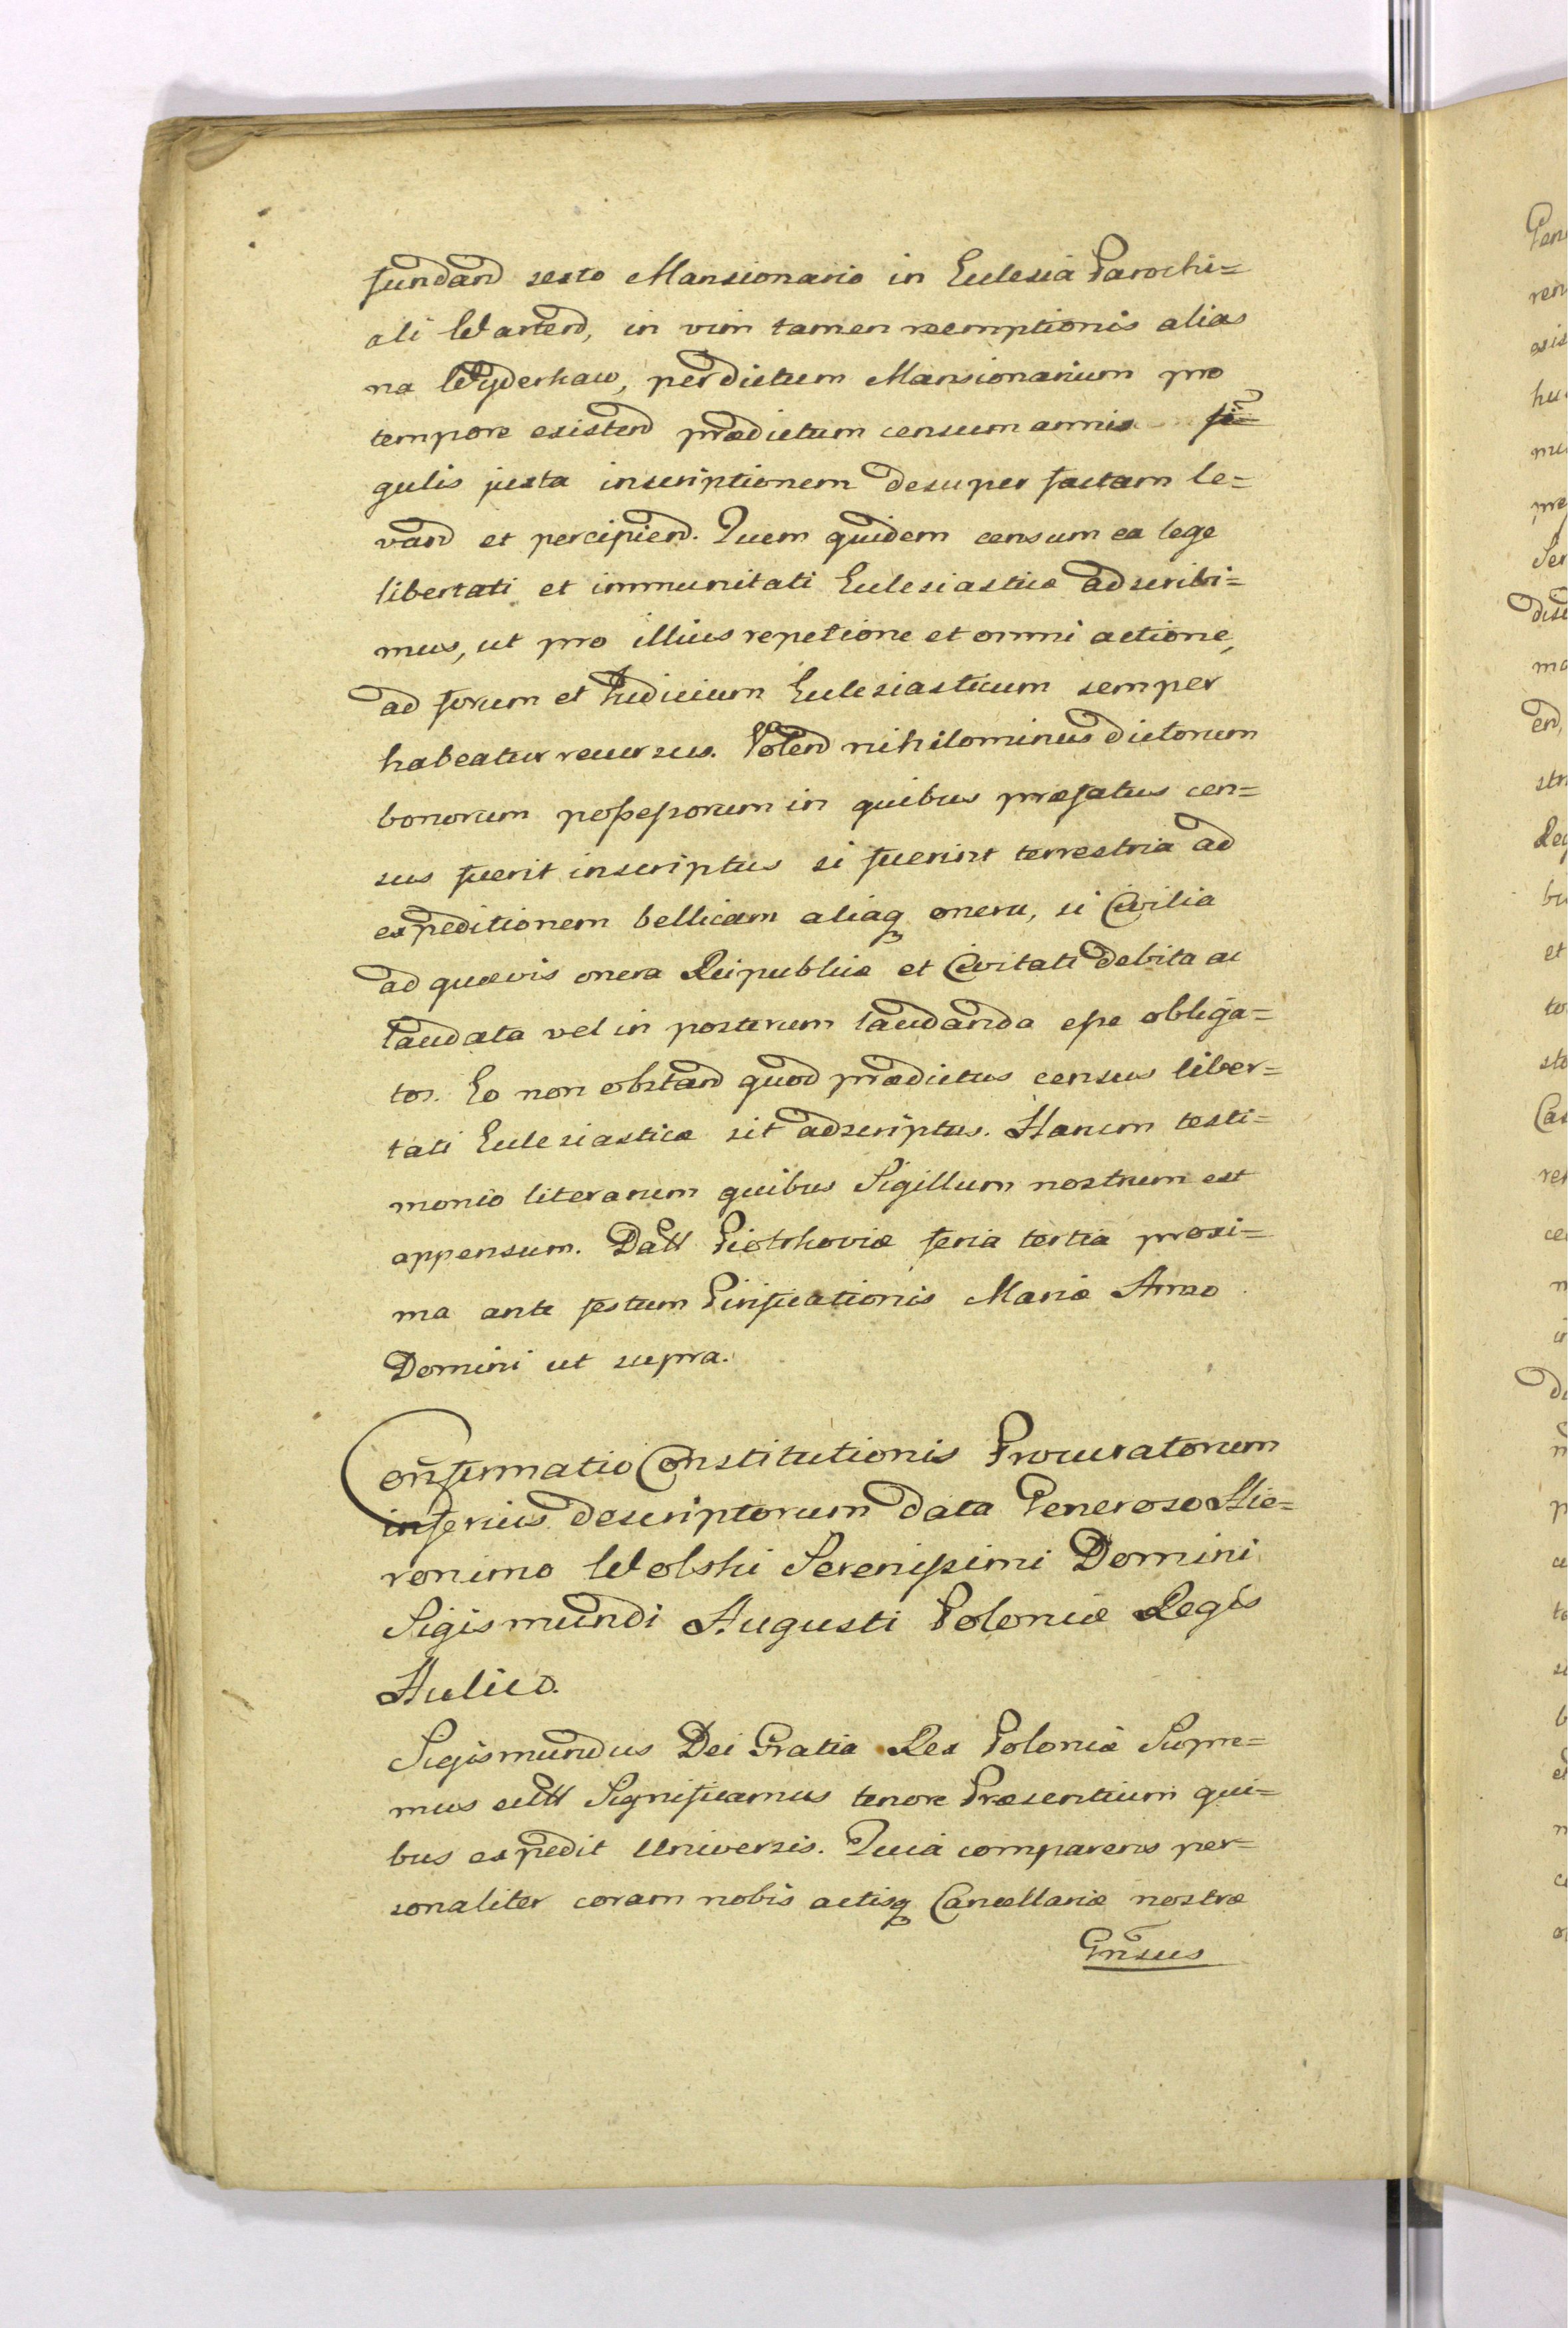 fundand sexto Mansionario in Ecclesia Parochi=
ali Warten̄d, in vim tamen reemptionis alias
na Wyderkaw, per dictum Mansionarium pro
tempore existend prædictum censum annis sī=
gulis juxta inscriptionem desuper factam le=
vand et percipiend. Quem quidem censum ea lege
libertati et immunitati Ecclesiasticæ adscribi=
mus, ut pro illius repetione et omni actione,
ad forum et Judicium Ecclesiasticum semper
habeatur recursus. Volend nihilominus dictorum
bonorum possessorum in quibus præfatus cen=
sus fuerit inscriptus si fuerint terrestria ad
expeditionem bellicam aliaq onera, si Civilia
ad quævis onera Reipublicæ et Civitati debita ac
laudata vel in posterum laudanda esse obliga=
tos. Eo non obstand quod prædictus census liber=
tati Ecclesiasticæ sit adscriptus. Harum testi=
monio literarum quibus Sigillum nostrum est
appensum. Datt Piotrkoviæ feria tertia proxi=
ma ante festum Purificationis Mariæ Anno
Domini ut supra.
Confirmatio Constitutionis Procuratorum
inferius descriptorum data Generoso Hie=
ronimo Wolski Serenissimi Domini
Sigismundi Augusti Poloniæ Regis
Aulico.
Sigismundus Dei Gratia Rex Poloniæ Supre=
mus ettt Significamus tenore Præsentium qui=
bus expedit Universis. Quia comparens per=
sonaliter coram nobis actisq Cancellariæ nostræ
Gn̄sus